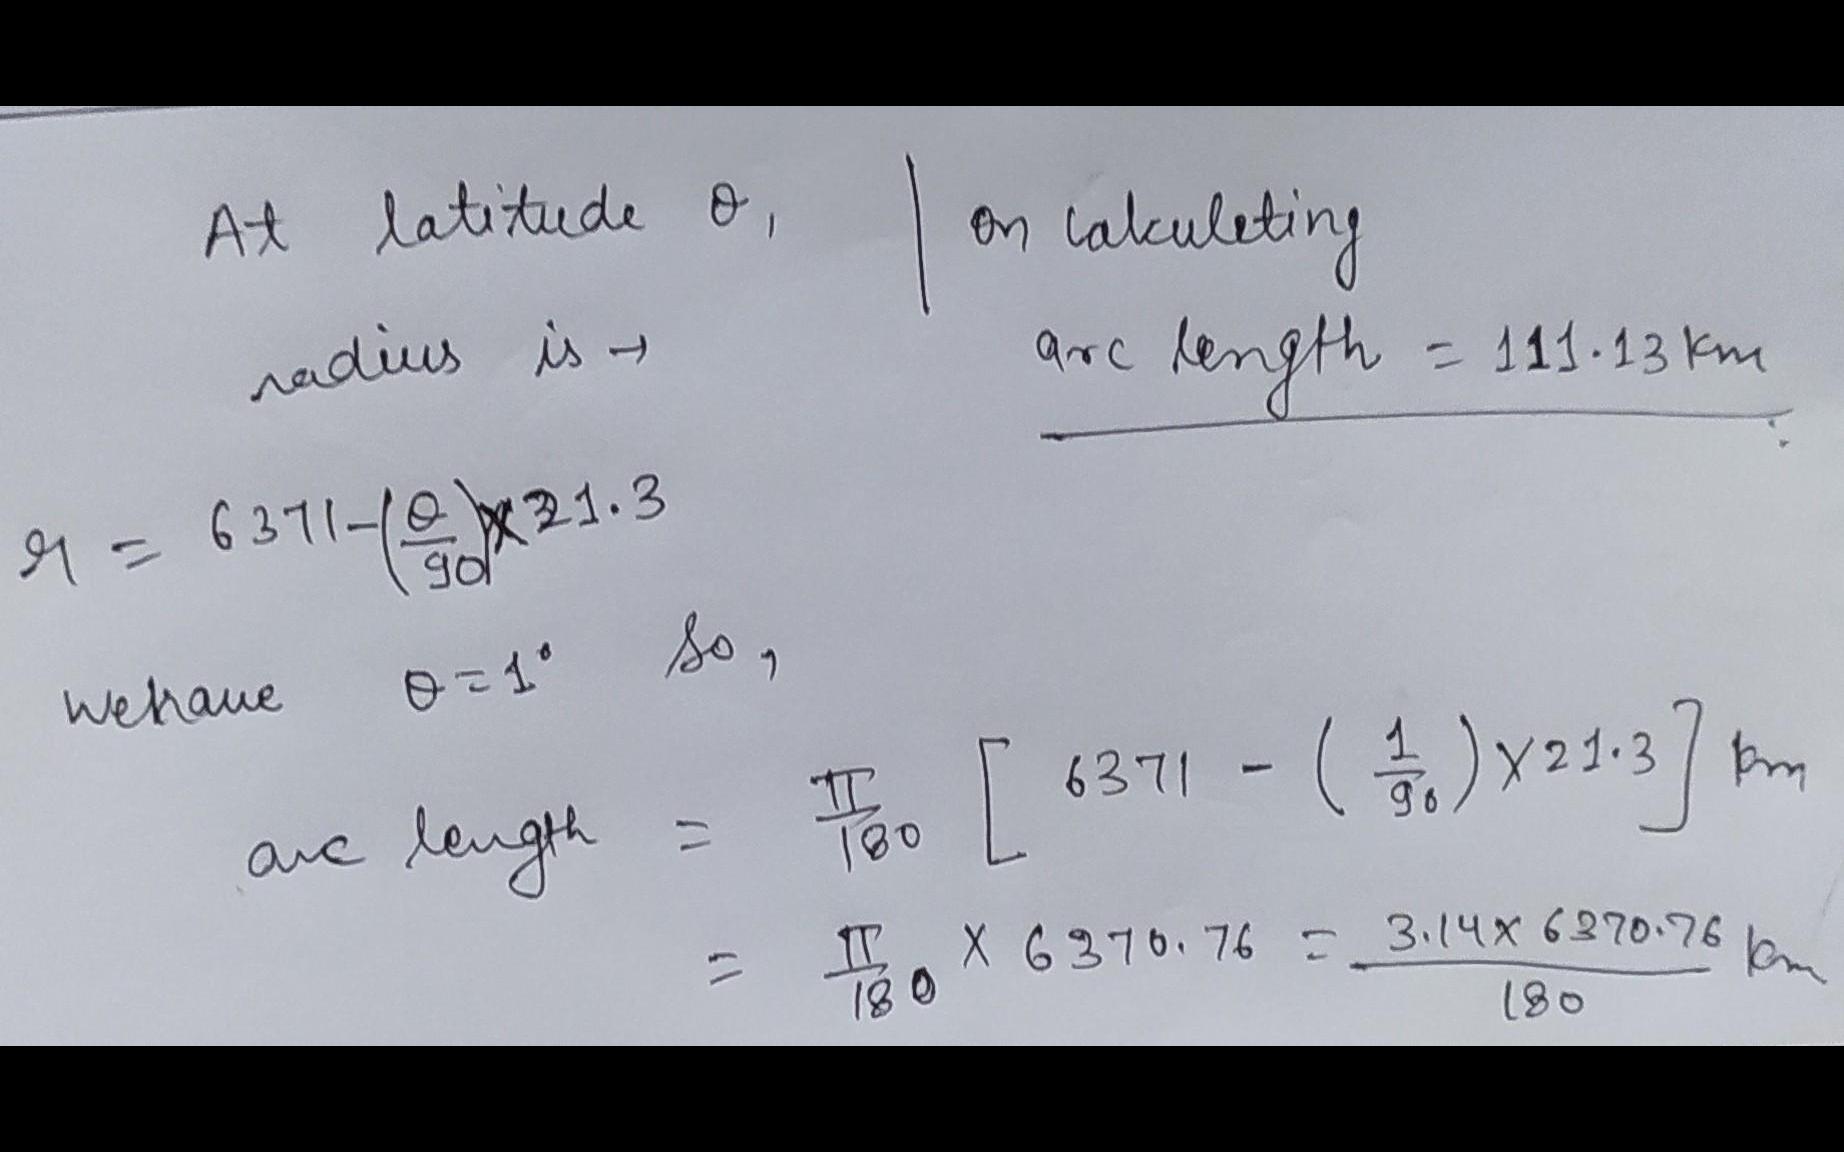 At latitude θ,
radius is →
r = 6371-(θ/90)×21.3
we have θ=1° So,
arc length = π/180 [ 6371 - ( 1/90 ) × 21.3 ] km
= π/180 × 6370.76 = 3.14 × 6370.76/180 km
on calculating
arc length = 111.13 km